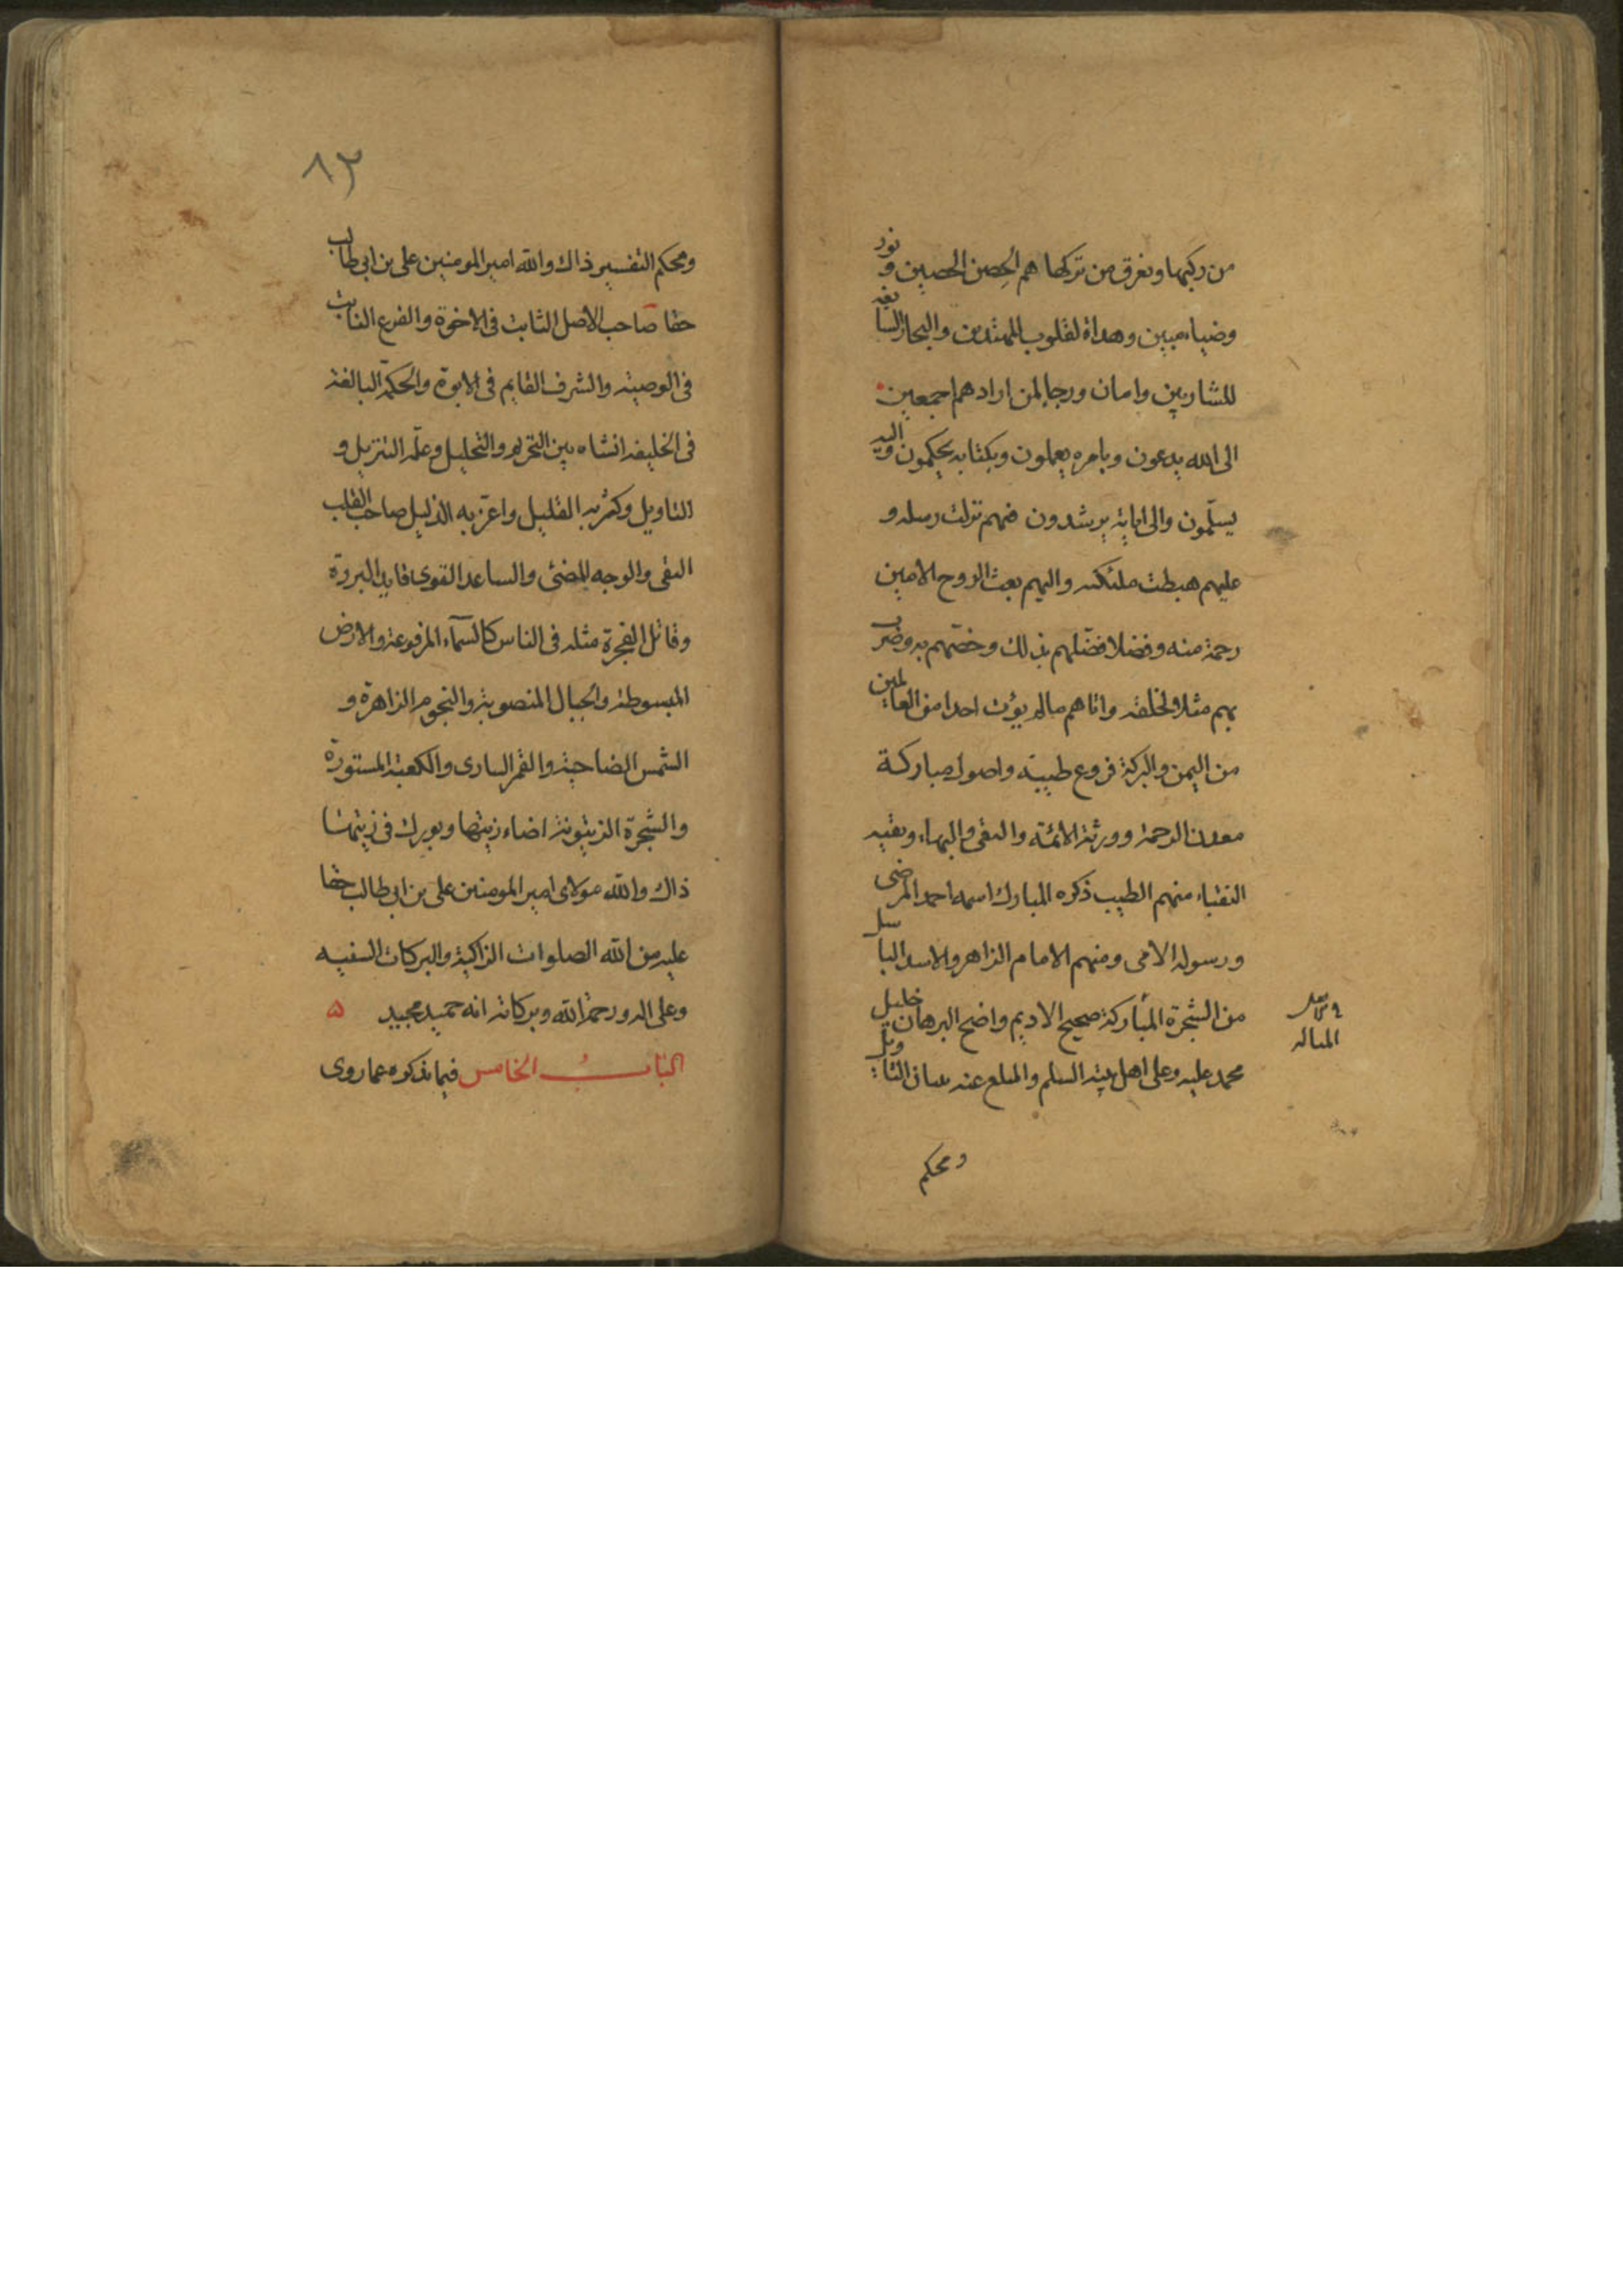 من ركبها ويغرق من تركها هم الحصن الحصين و نور
وضياء مبين وهداة لقلوب المهتدين والبحار السايغه
للشاربين وامان ورجا لمن ارادهم اجمعين
الى الله يدعون وبامره يعملون وبكتابه يحكمون واليه
يسلّمون والى اياته يرشدون فهم نزلت رسله و
عليهم هبطت ملئكته واليهم بعث الروح الامين
رحمة منه وفضلا فضّلهم بذلك وخصّهم به وضرب
بهم مثلا لخلقه واتاهم مالم يؤت احدا من العالمين
من اليمن والبركة فروع طيبة واصول مباركة
معدن الرحمة وورثة الائمة والتقى والبهاء وبقيه
النقباء منهم الطيب ذكره المبارك اسمه احمد المرضى
ورسوله الامى ومنهم الامام الزاهر والاسد الباسل
من الشجرة المباركة صحيح الاديم واضح البرهان خليل
محمد عليه وعلى اهل بيته السلم والمبلغ عنه بيان التاويل
ومحكم
٨٣
ومحكم التفسير ذاك والله امير المومنين على بن ابى طالب
حقا صاحب الاصل الثابت فى الاخوة والفرع النابت
فى الوصية والشرف القايم فى الابوة والحكمة البالغة
فى الخليفة انشاه بين التحريم والتحليل وعلّمه التنزيل و
التاويل وكثر به القليل واعزّ به الذليل صاحب القلب
التقى والوجه المضئ والساعد القوى قايد البررة
وقاتل الفجرة مثله فى الناس كالسمآء المرفوعة والارض
المبسوطة والجبال المنصوبة والنجوم الزاهرة و
الشمس الضاحية والقمر السارى والكعبة المستورة
والشجرة الزيتونة اضاء زيتها وبورك فى زيتها
ذاك والله مولاى امير المومنين على بن ابى طالب حقا
عليه من الله الصلوات الزاكية والبركات السنيه
وعلى اله ورحمة الله وبركاته انه حميد مجيد ۵
الباب الخامس فيما نذكره مما روى